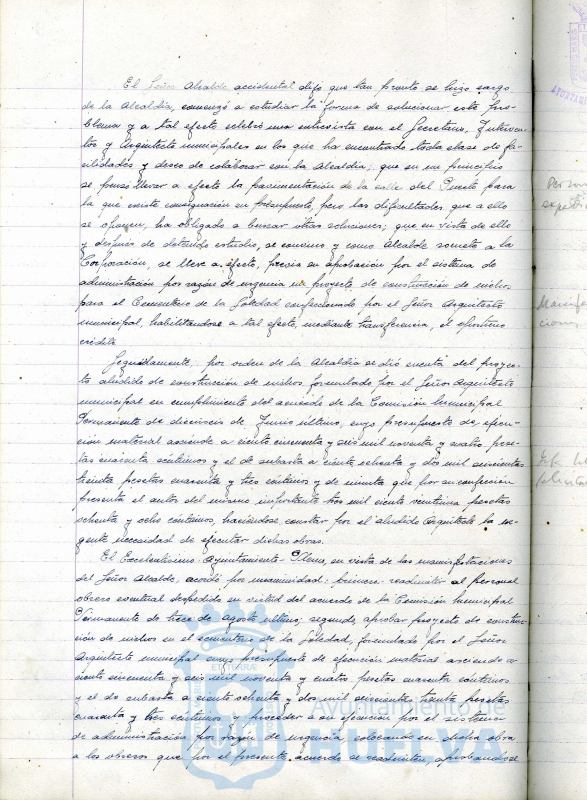 El Señor Alcalde accidental dijo que tan pronto se hizo cargo
de la Alcaldia, comenzó a estudiar la forma de solucionar este pro-
blema y a tal efecto celebró una entrevista con el Secretario, Interven-
tor y Arquitecto municipales en los que ha encontrado toda clase de fa-
cilidades y deseo de colaborar con la Alcaldia; que en un principio
se pensó llevar a efecto la pavimentación de la calle del Puerto para
la que existe consignación en Presupuesto, pero las dificultades que a ello
se oponen, ha obligado a buscar otras soluciones; que en vista de ello
y después de detenido estudio, se convino y como Alcalde somete a la
Corporación, se lleve a efecto, previa su aprobación por el sistema de
administración por razón de urgencia un proyecto de construcción de nichos
para el Cementerio de la Soledad confeccionado por el Señor Arquitecto
municipal, habilitándose a tal efecto, mediante transferencia, el oportuno
crédito.
Seguidamente, por orden de la Alcaldia se dió cuenta del proyec-
to aludido de construcción de nichos formulado por el Señor Arquitecto
municipal en cumplimiento del acuerdo de la Comisión Municipal
Permanente de dieciseis de Junio último, cuyo presupuesto de ejecu-
ción material asciende a ciento cincuenta y seis mil noventa y cuatro pese-
tas cuarenta centimos y el de subasta a ciento ochenta y dos mil seiscientas
treinta pesetas cuarenta y tres centimos y de minuta que por su confección
presenta el autor del mismo importante tres mil ciento veintiuna pesetas
ochenta y ocho centimos, haciéndose constar por el aludido Arquitecto la ur-
gente necesidad de ejecutar dichas obras.
El Excelentisimo Ayuntamiento Pleno, en vista de las manifestaciones
del Señor Alcalde, acordó por unanimidad: primero readmitir al personal
obrero eventual despedido en virtud del acuerdo de la Comisión Municipal
Permanente de trece de Agosto último; segundo, aprobar proyecto de construc-
ción de nichos en el cementerio de la Soledad, formulado por el Señor
Arquitecto municipal cuyo presupuesto de ejecución material asciende a
ciento cincuenta y seis mil noventa y cuatro pesetas cuarenta centimos
y el de subasta a ciento ochenta y dos mil seiscientas treinta pesetas
cuarenta y tres centimos y proceder a su ejecución por el sistema
de administración por razón de urgencia, colocando en dicha obra
a los obreros que por el presente acuerdo se readmiten, aprobándose
Ayuntamiento de
HUELVA